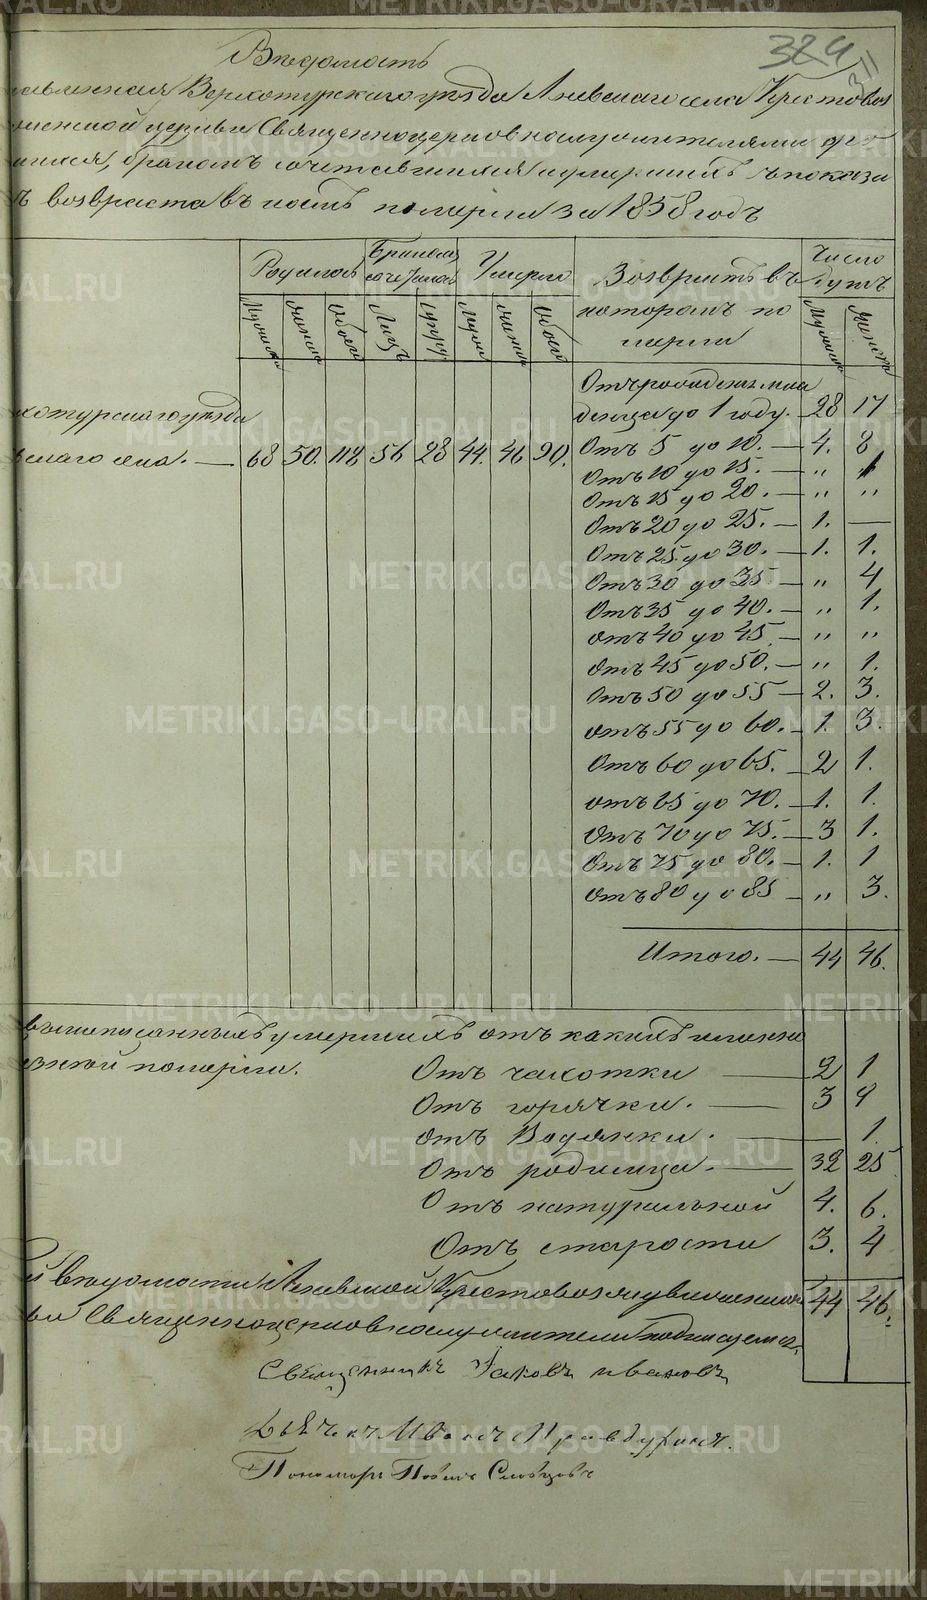 324
311
Ведомость
Верхотурскаго уезда Ляевскаго села Крестовоз
церкви Священноцерковнослужителями о ро
бракомъ сочетавшихся и умершихъ съ показа
возвраста въ коемъ померли за 1858 годъ
Родилось Бракомъ сочеталось Умерло Возврастъ въ Число душъ
Мужеска женска Обоего Лицъ Супру Муже женск Обоего которомъ по Мужеска Женска
мерли
Отъ рожденія мла
уезда денца до 1 году. 28 17
скаго села. — 68 50. 118 56 28 44. 46 90. Отъ 5 до 10. — 4. 8
Отъ 10 до 15. — „ 1
Отъ 15 до 20. — „ „
Отъ 20 до 25. — 1. —
Отъ 25 до 30. — 1. 1.
Отъ 30 до 35. „ 4
Отъ 35 до 40. — „ 1.
Отъ 40 до 45 — „ „
Отъ 45 до 50. — „ 1.
Отъ 50 до 55 — 2. 3.
Отъ 55 до 60. — 1. 3.
Отъ 60 до 65. — 2 1.
Отъ 65 до 70. — 1. 1.
Отъ 70 до 75. — 3 1.
Отъ 75 до 80. — 1. 1
Отъ 80 до 85 — „ 3.
Итого. — 44 46.
умершихъ отъ какихъ именно
померли. Отъ чахотки — 2 1
Отъ горячки. — 3 9
Отъ Водянки. — 1.
Отъ родимца. — 32 25
Отъ натуральной 4. 6.
Отъ старости 3. 4
й ведомости Крестовоздвиженской 44 46.
Священноцерковнослужители подписуемся
Священникъ Іаковъ Ивановъ
Дьячекъ Иванъ
Пономарь Павелъ Словцовъ
METRIKI.GASO-URAL.RU